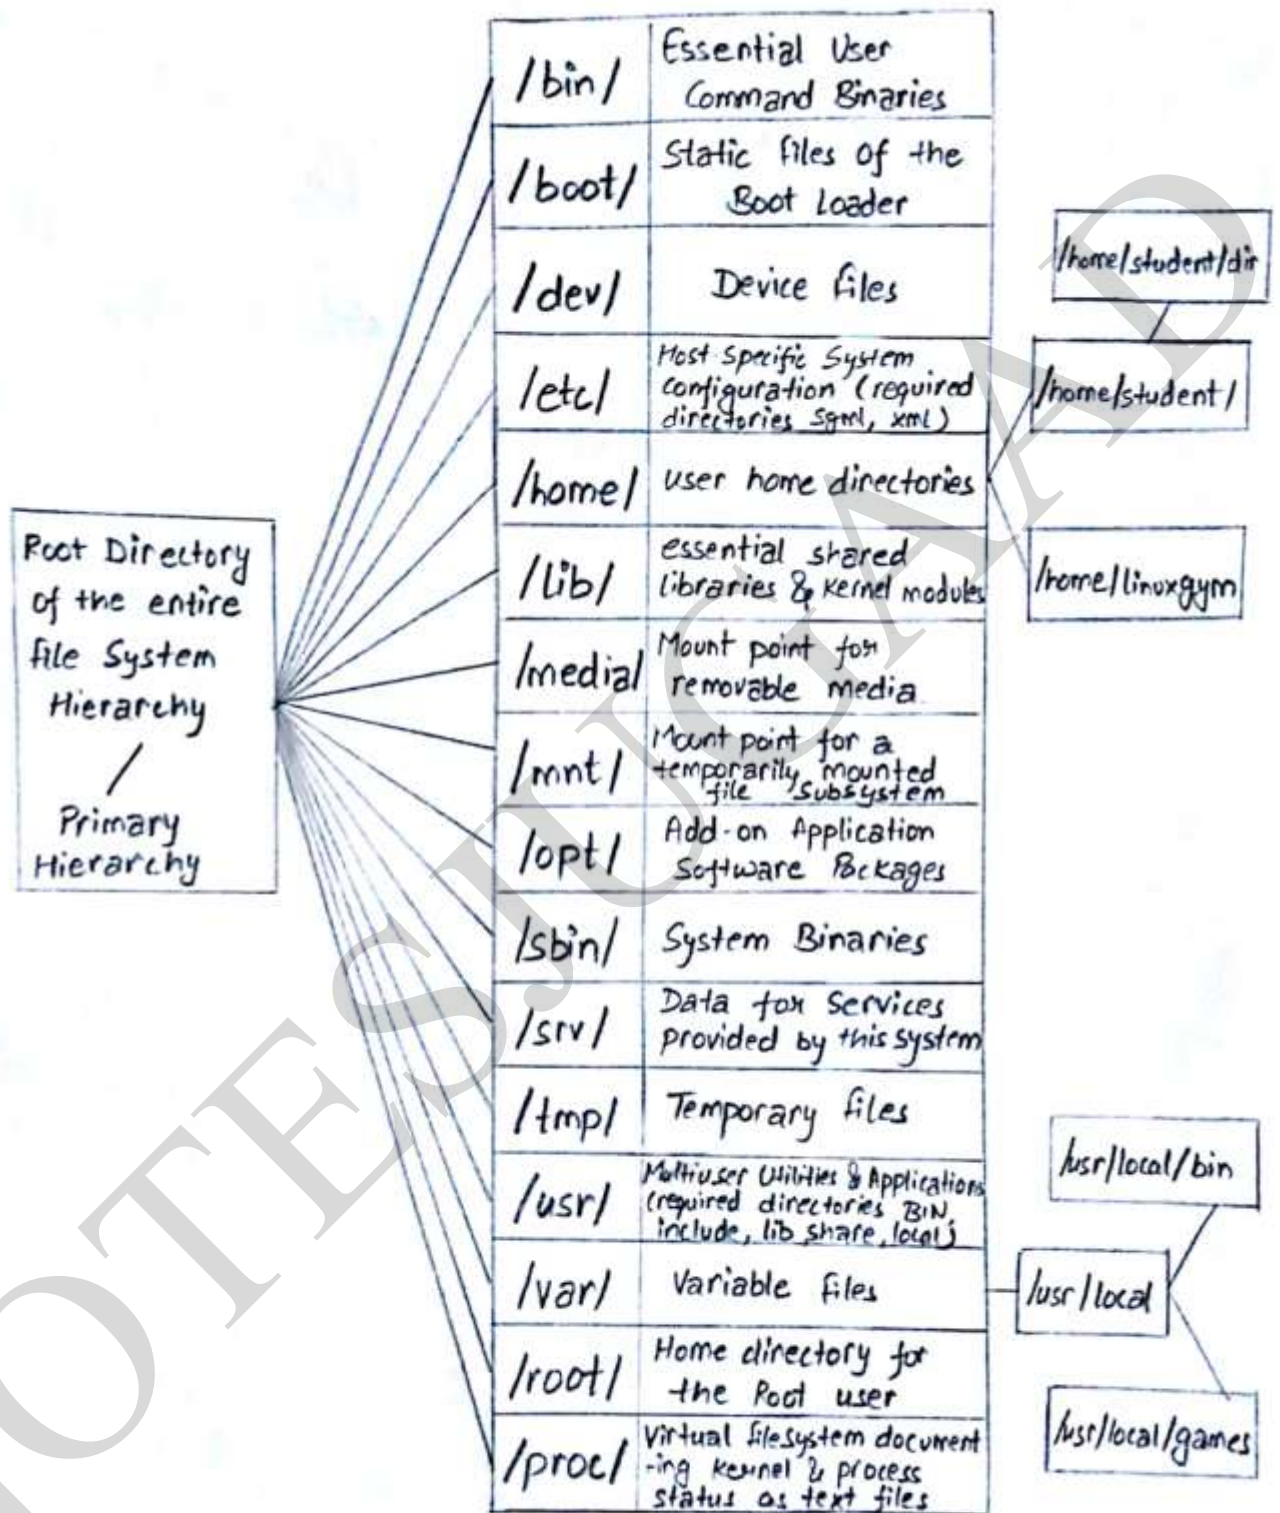 Root Directory
of the entire
file System
Hierarchy
/
Primary
Hierarchy
/bin/
Essential User
Command Binaries
/boot/
Static files of the
Boot Loader
/dev/
Device files
/etc/
Host Specific System
configuration (required
directories sgml, xml)
/home/
user home directories
/lib/
essential shared
libraries & kernel modules
/media/
Mount point for
removable media
/mnt/
Mount point for a
temporarily mounted
file subsystem
/opt/
Add-on Application
Software Packages
/sbin/
System Binaries
/srv/
Data for services
provided by this system
/tmp/
Temporary files
/usr/
Multiuser Utilities & Applications
(required directories BIN
include, lib share, local)
/var/
Variable files
/root/
Home directory for
the Root user
/proc/
Virtual filesystem document
-ing kernel & process
status as text files
/home/student/dir
/home/student/
/home/linuxgym
/usr/local/bin
/usr/local
/usr/local/games
OTESJUGAAD